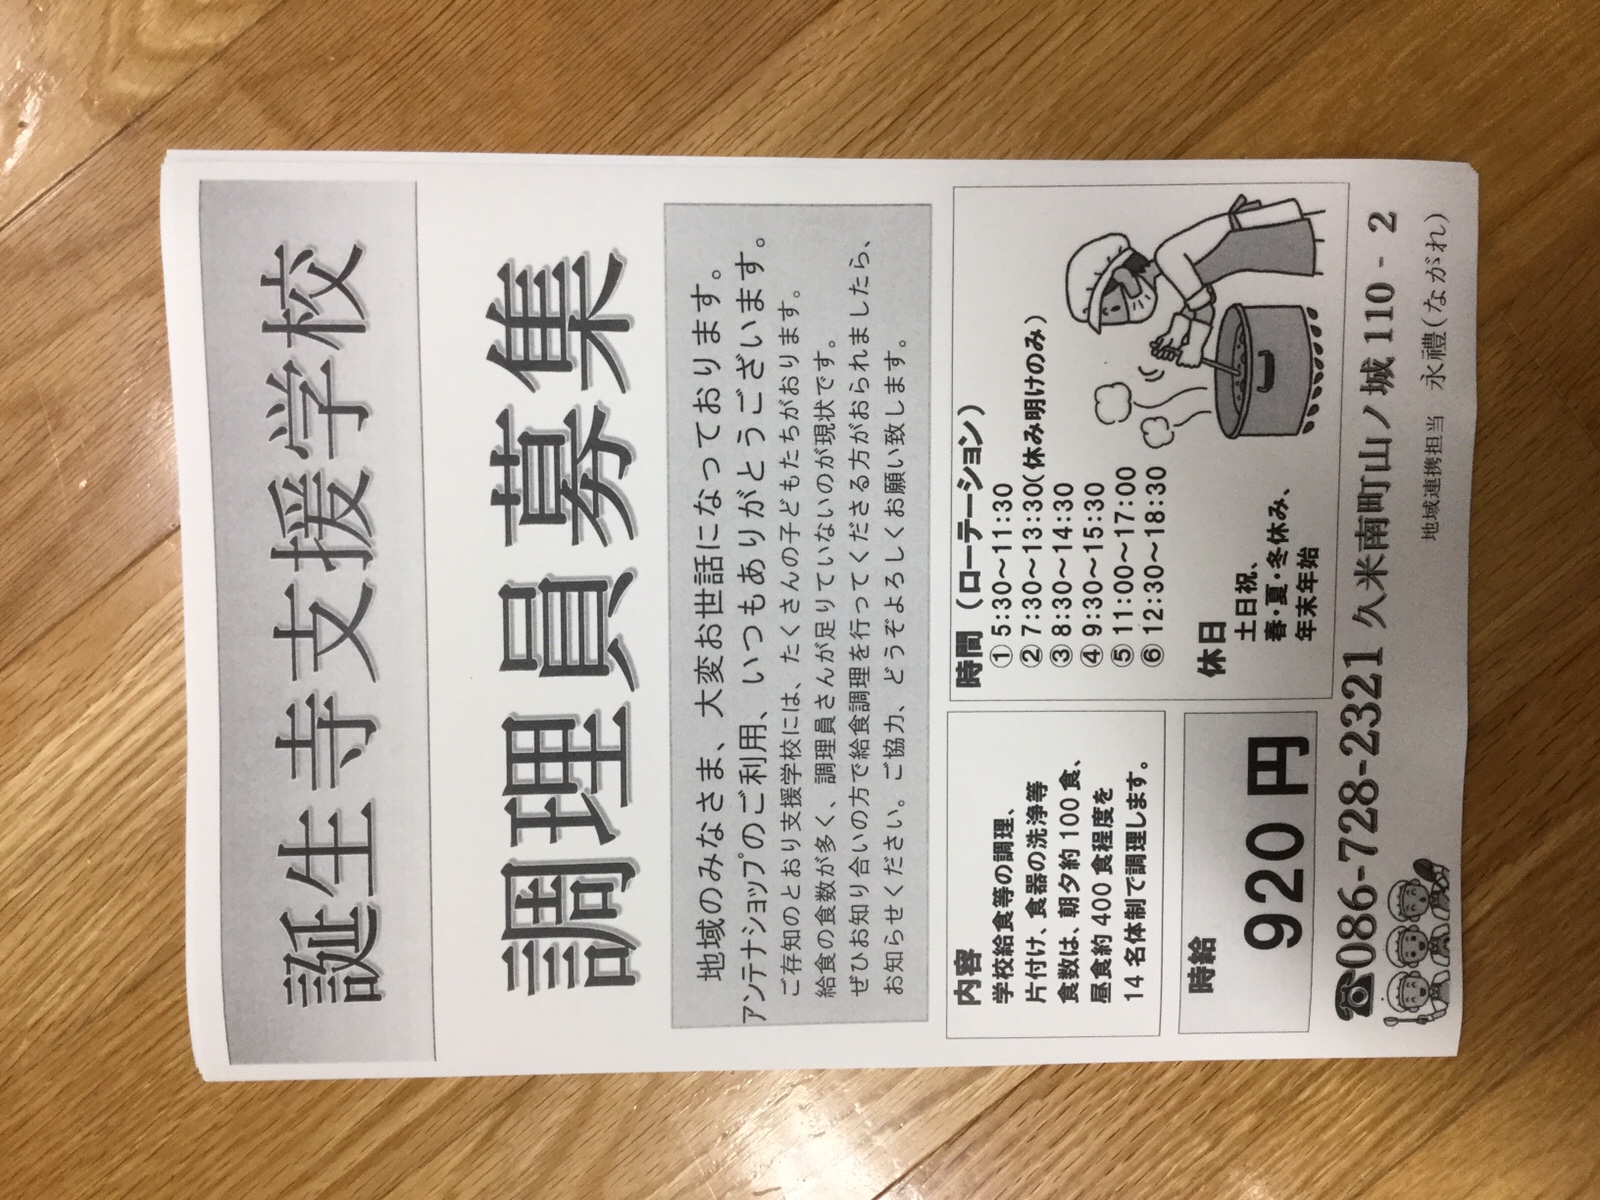 誕生寺支援学校
調理員募集
地域のみなさま、大変お世話になっております。
アンテナショップのご利用、いつもありがとうございます。
ご存知のとおり支援学校には、たくさんの子どもたちがおります。
給食の食数が多く、調理員さんが足りていないのが現状です。
ぜひお知り合いの方で給食調理を行ってくださる方がおられましたら、
お知らせください。ご協力、どうぞよろしくお願い致します。
内容
学校給食等の調理、
片付け、食器の洗浄等
食数は、朝夕約100食、
昼食約400食程度を
14名体制で調理します。
時給
920円
時間（ローテーション）
①5:30～11:30
②7:30～13:30(休み明けのみ）
③8:30～14:30
④9:30～15:30
⑤11:00～17:00
⑥12:30～18:30
休日
土日祝、
春・夏・冬休み、
年末年始
☎086-728-2321 久米南町山ノ城110‐2
地域連携担当　永禮（ながれ）